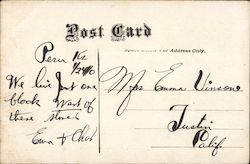 Post Card
Space Below For Address Only.
Peru Ks
1/24/10
We live Just one
block West of
these stores
Eva & Chas
Mrs Emma Vinson
Tustin
Calif